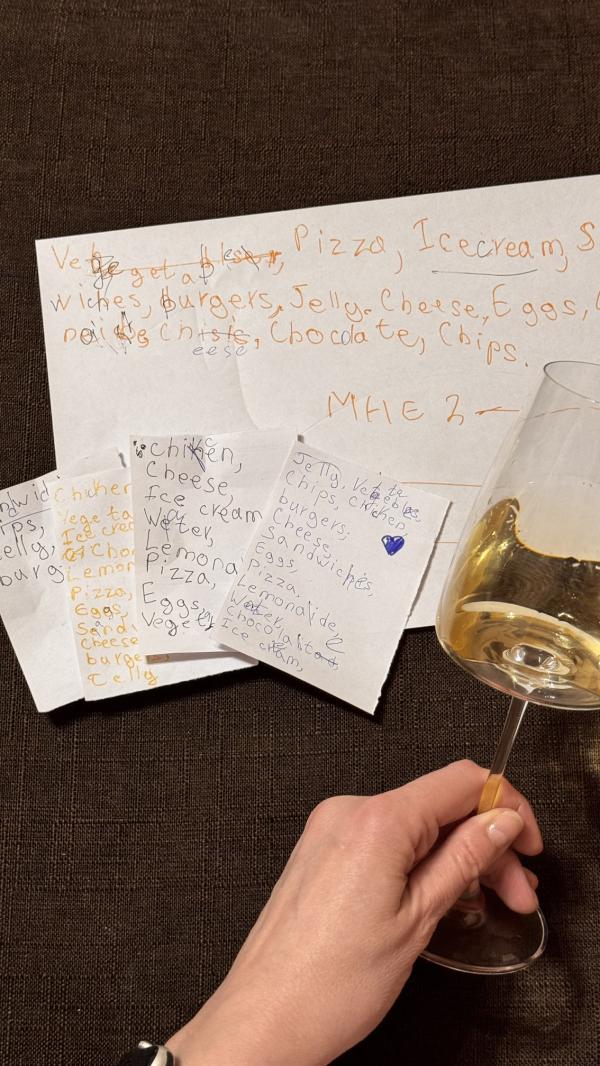 Pizza, Icecream, S
wiches, burgers, Jelly, Cheese, Eggs,
eese, Chocolate, Chips.
MAE 2
ndwid
ips,
elly,
burg
Chicken
Vegeta
Ice crea
Choc
Lemon
Pizza,
Eggs,
Sand
cheese
burge
Jelly
chicken,
Cheese,
Ice cream
Water,
Lemona
Pizza,
Eggs,
Veget
Jelly, Vegetebles,
Chips, chicken,
burgers,
Cheese,
Sandwiches,
Eggs,
Pizza,
Lemonaide,
Water,
Chocolat
Ice cream,